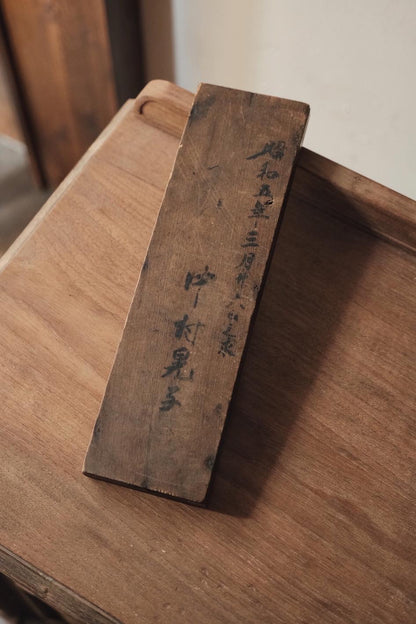 昭和五年三月廿六日之求
中村晃子